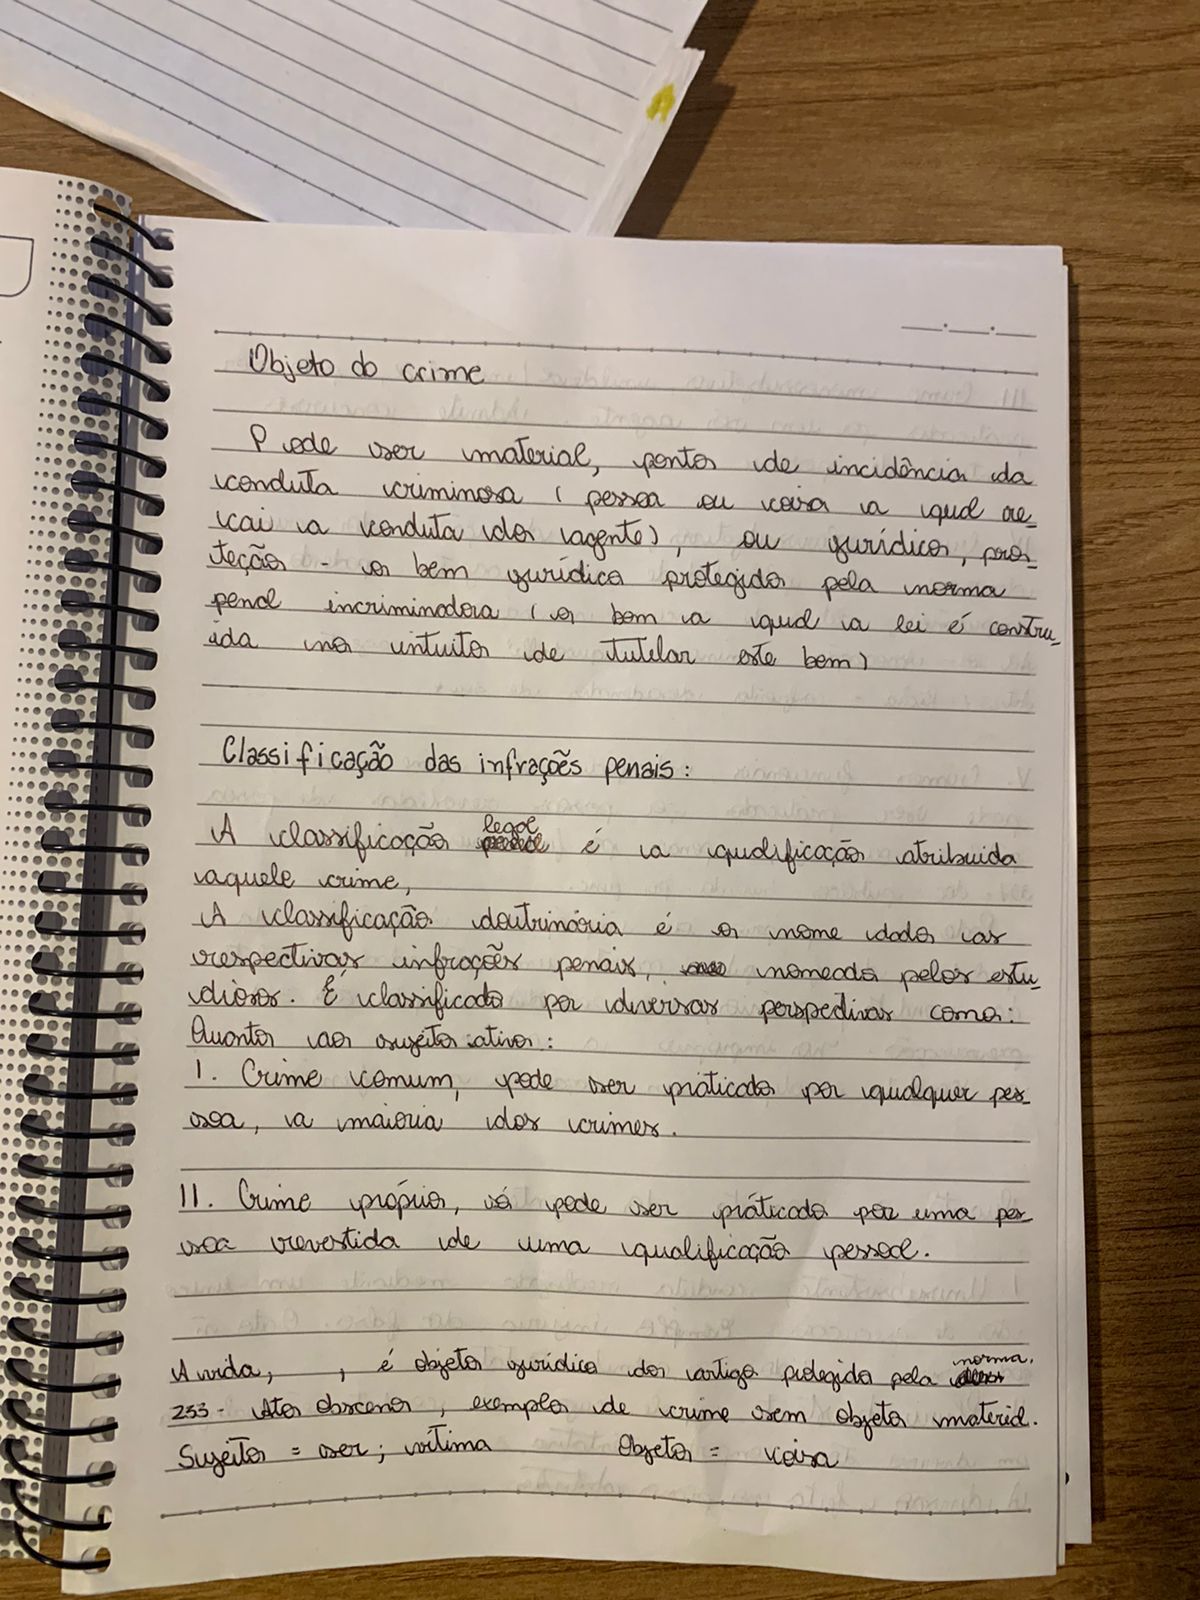 Objeto do crime
Pode ser material, ponto de incidência da
conduta criminosa ( pessoa ou coisa a qual re_
cai a conduta do agente), ou jurídico, pro_
teção - o bem jurídico protegido pela norma
penal incriminadora ( o bem a qual a lei é constru_
ida no intuito de tutelar este bem)
Classificação das infrações penais:
A classificação legal é a qualificação atribuida
aquele crime,
A classificação doutrinária é o nome dado as
respectivas infrações penais, nomeada pelos estu_
diosos. É classificado por diversas perspectivas como:
Quanto ao sujeito ativo:
I. Crime comum, pode ser práticado por qualquer pes_
soa, a maioria dos crimes.
II. Crime próprio, só pode ser práticado por uma pes_
soa revestida de uma qualificação pessoal.
A vida, , é objeto jurídico do artigo protegido pela norma.
233 - Ato obsceno, exemplo de crime sem objeto material.
Sujeito = ser; vítima Objeto = coisa